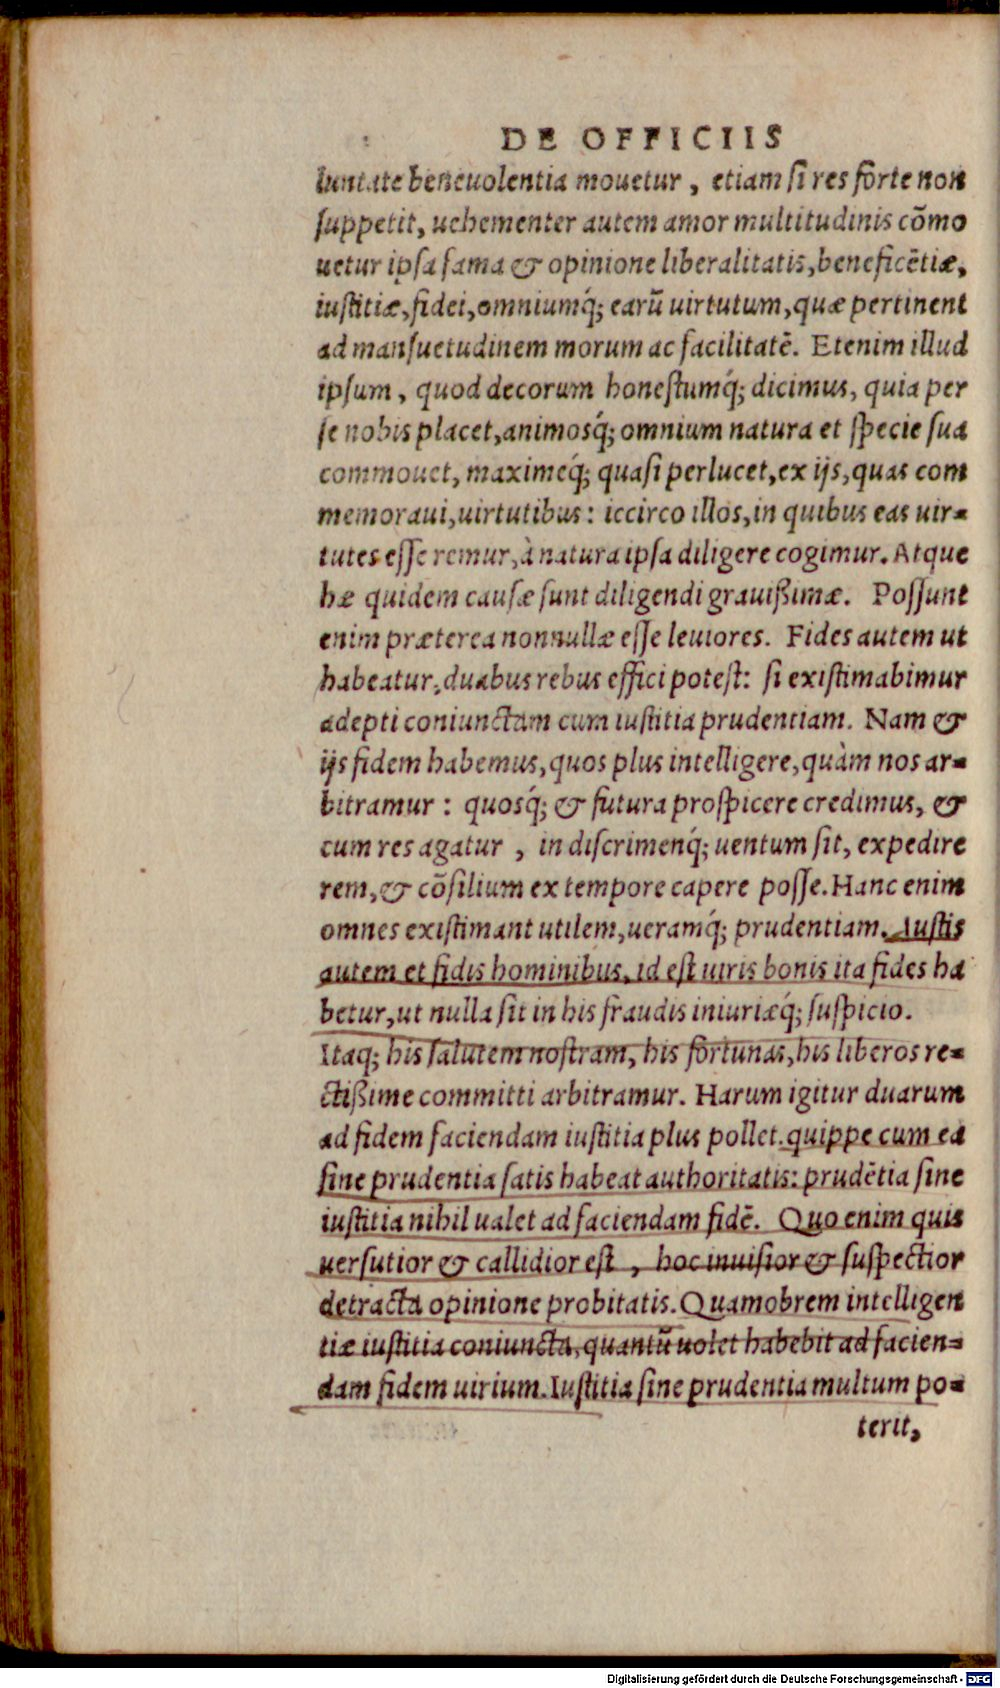 DE OFFICIIS
luntate beneuolentia mouetur, etiam si res forte non
suppetit, uehementer autem amor multitudinis cõmo
uetur ipsa fama & opinione liberalitatis, beneficẽtiæ,
iustitiæ, fidei, omniumq́; earũ uirtutum, quæ pertinent
ad mansuetudinem morum ac facilitatẽ. Etenim illud
ipsum, quod decorum honestumq́; dicimus, quia per
se nobis placet, animosq́; omnium natura et specie sua
commouet, maximeq́; quasi perlucet, ex ijs, quas com
memoraui, uirtutibus: iccirco illos, in quibus eas uir-
tutes esse remur, à natura ipsa diligere cogimur. Atque
hæ quidem causæ sunt diligendi grauißimæ. Possunt
enim præterea nonnullæ esse leuiores. Fides autem ut
habeatur, duabus rebus effici potest: si existimabimur
adepti coniunctam cum iustitia prudentiam. Nam &
ijs fidem habemus, quos plus intelligere, quàm nos ar-
bitramur: quosq́; & futura prospicere credimus, &
cum res agatur, in discrimenq́; uentum sit, expedire
rem, & cõsilium ex tempore capere posse. Hanc enim
omnes existimant utilem, ueramq́; prudentiam. Iustis
autem et fidis hominibus, id est uiris bonis ita fides ha
betur, ut nulla sit in his fraudis iniuriæq́; suspicio.
Itaq; his salutem nostram, his fortunas, his liberos re-
ctißime committi arbitramur. Harum igitur duarum
ad fidem faciendam iustitia plus pollet. quippe cum ea
sine prudentia satis habeat authoritatis: prudẽtia sine
iustitia nihil ualet ad faciendam fidẽ. Quo enim quis
uersutior & callidior est, hoc inuisior & suspectior
detracta opinione probitatis. Quamobrem intelligen
tiæ iustitia coniuncta, quantũ uolet habebit ad facien-
dam fidem uirium. Iustitia sine prudentia multum po-
terit,
Digitalisierung gefördert durch die Deutsche Forschungsgemeinschaft - DFG